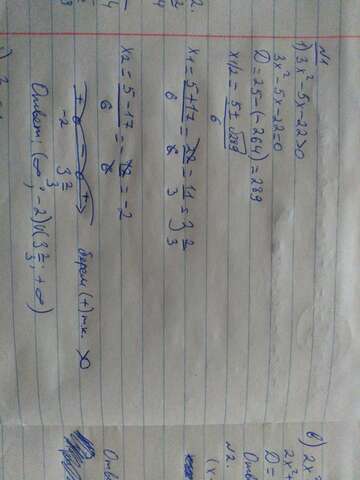 N1
1) 3x²-5x-22>0
3x²-5x-22=0
D=25-(-264)=289
x1/2 = 5±√289 / 6
x1 = 5+17 / 6 = 22 / 6 = 11 / 3 = 3 2/3
x2 = 5-17 / 6 = -12 / 6 = -2
+ - +
-2 3 2/3 берем (+) т.к. >0
Ответ: (-∞; -2)∪(3 2/3; +∞)
в) 2x²
2x²+
D=
N2.
(x